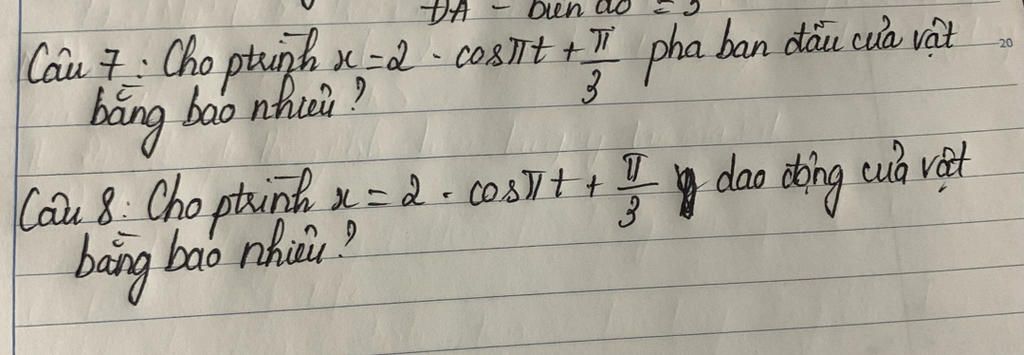 ĐA - biên độ = 3
Câu 7: Cho ptrình x = 2 . cosπt + π/3 pha ban đầu của vật
bằng bao nhiêu?
20
Câu 8: Cho ptrình x = 2 . cosπt + π/3 dao động của vật
bằng bao nhiêu?